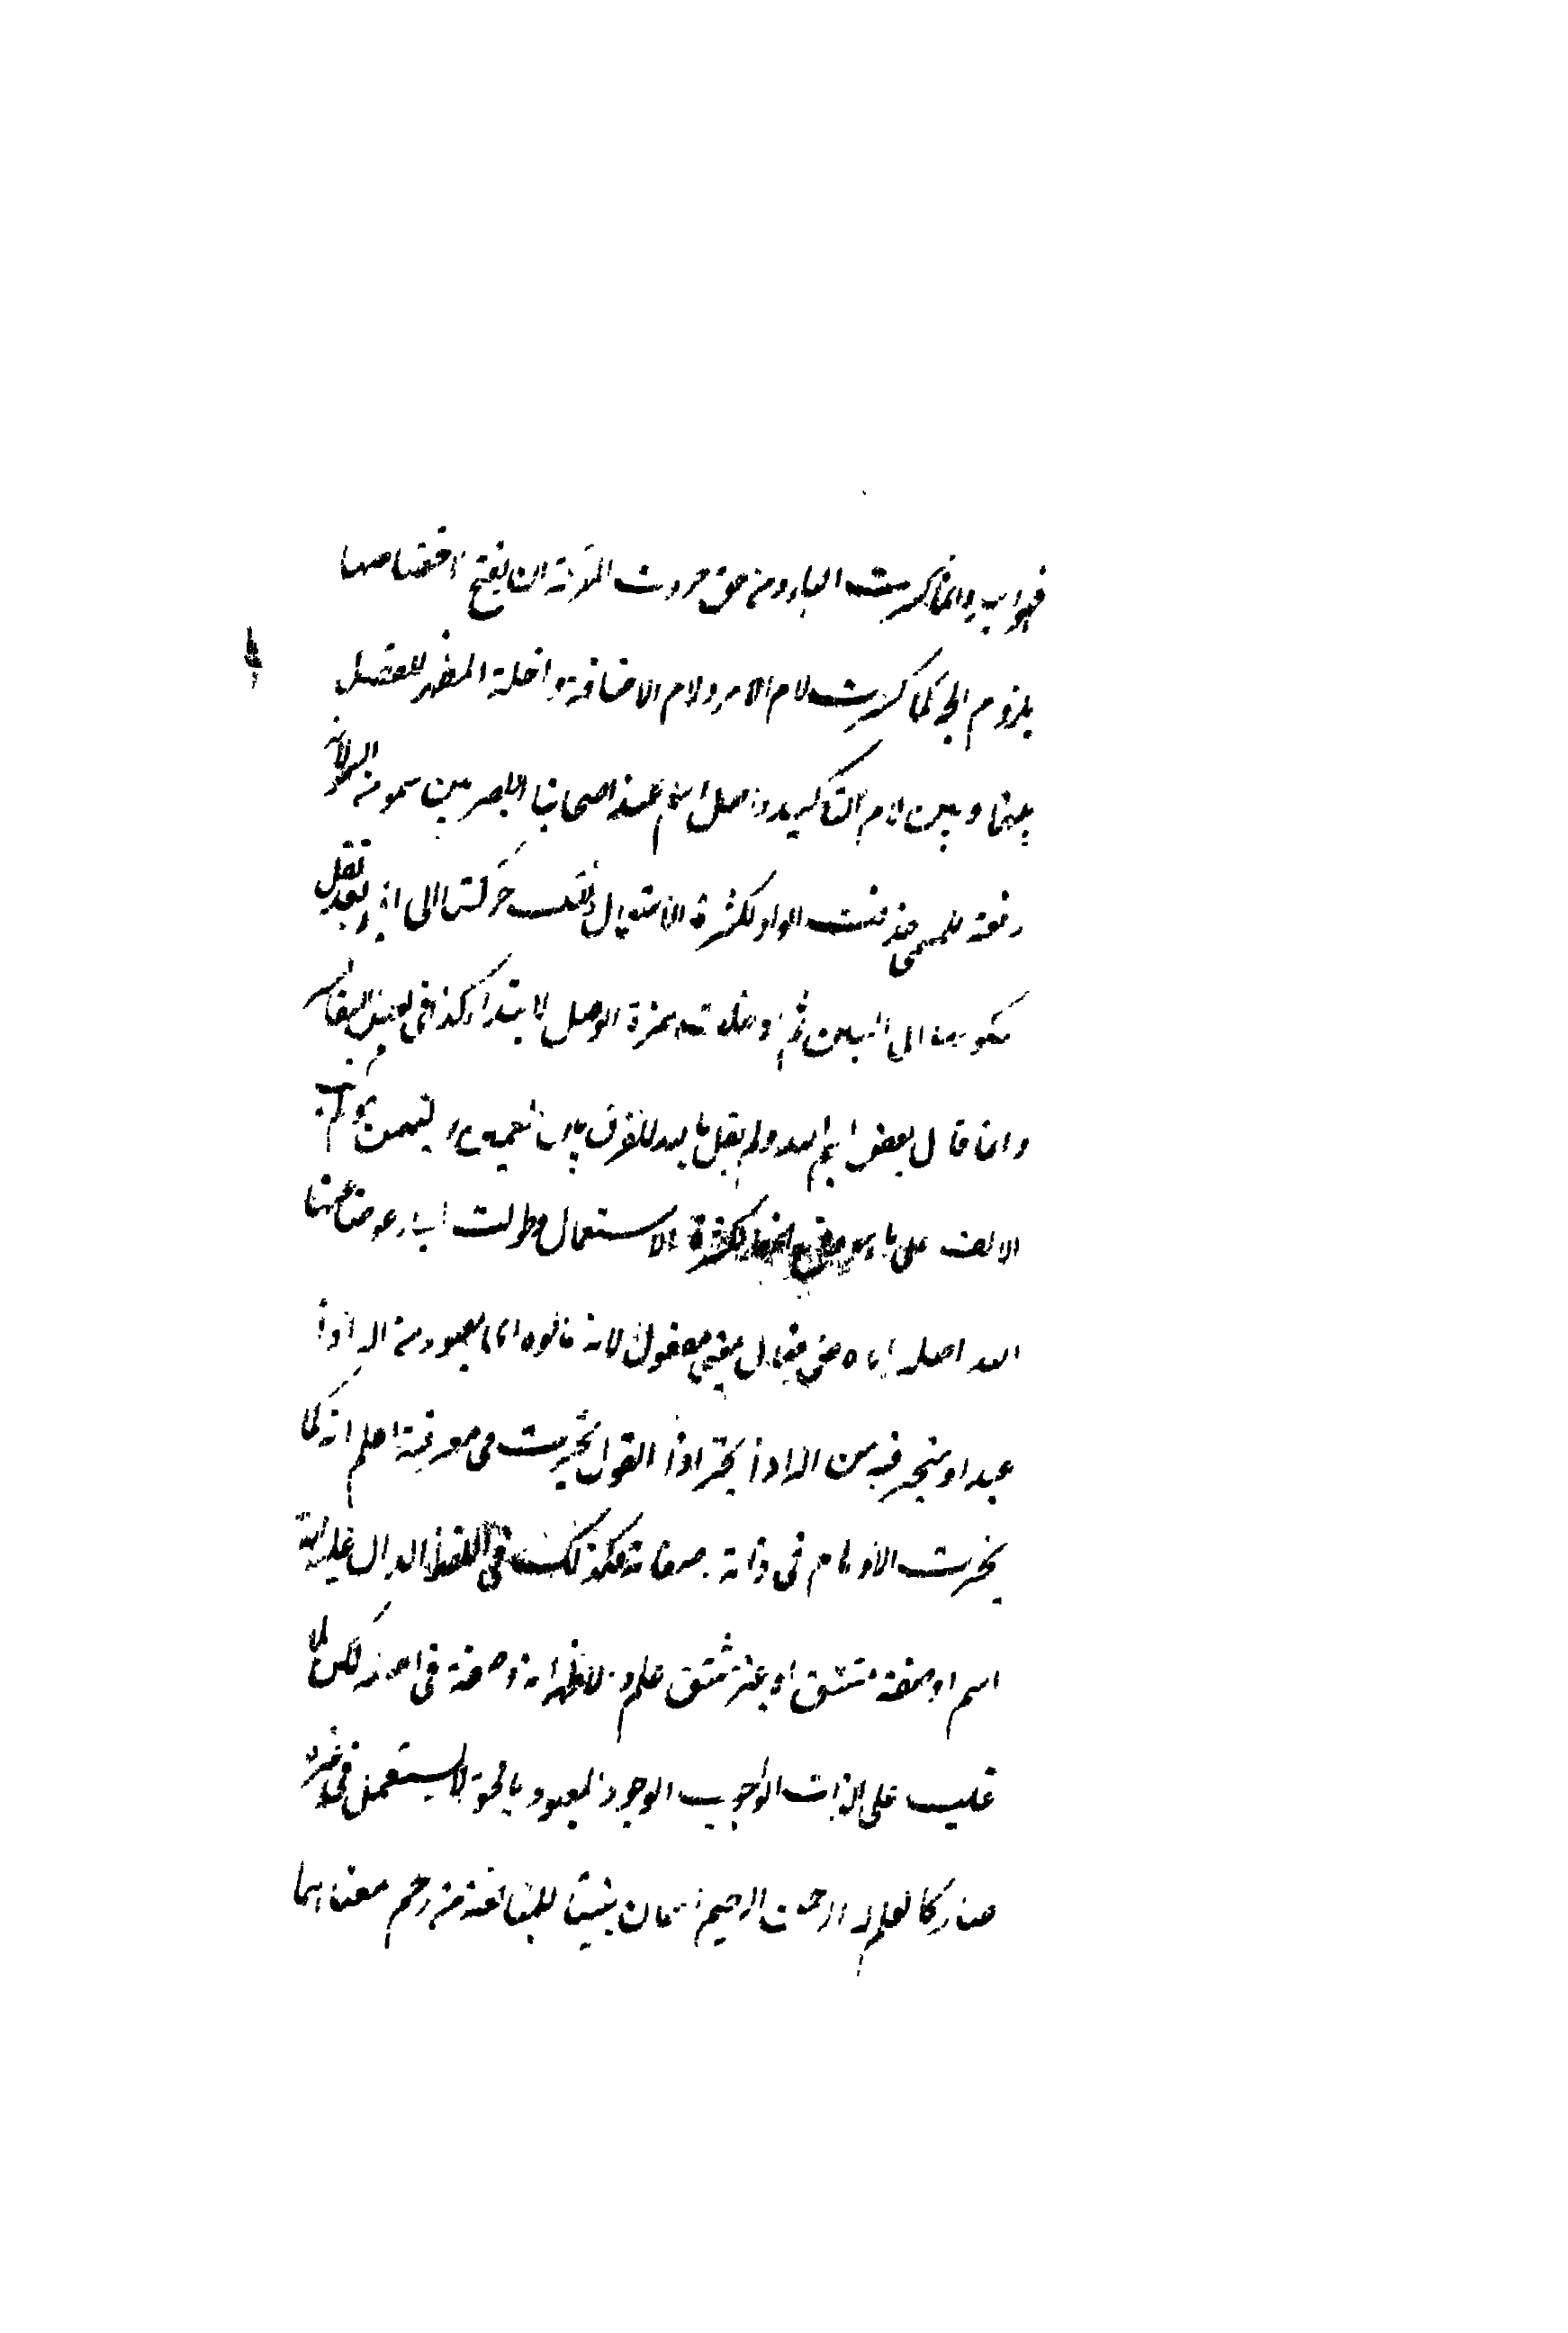 فهو ابتر وانما كسرت الباء ومن حق حروف المفردة ان يفتح لاختصاصها
بلزوم الجر كما كسرت لام الامر ولام الاضافة داخلة المظهر للفصل
بينهما وبين لام التاكيد واصل اسم عند اصحابنا البصريين سمو من السمو لانه
رفعة للمسمى حذفت الواو لكثرة الاستعمال ونقلت حركتها الى الميم بعد نقل
سكونها الى السين ثم ادخلت همزة الوصل للابتداء كذا في بعض التفاسير
وانما قال بعض بسم الله ولم يقل بالله للفرق بين اليمين والتيمن
الالف على ما هو وضع الخط لكثرة الاستعمال وطولت الباء عوضا عنها
الله اصله الاه فعال بمعنى مفعول لانه مالوه اي معبود من اله اذا
عبد او متحير فيه من اله اذا تحير اذا العقول تحيرت في معرفته اعلم انه كما
تحيرت الاوهام في ذاته وصفاته فكذلك في اللفظ الدال عليه انه
اسم او صفة مشتق او غير مشتق علم والاظهر انه وصف في اصله لكن لما
غلب على الذات الواجب الوجود المعبود بالحق لا يستعمل في غيره
صار كالعلم له الرحمن الرحيم اسمان بنيتا للمبالغة من رحم معناهما